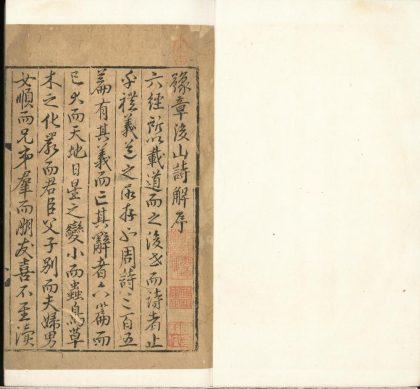 豫章後山詩解序
六經所以載道而之後世而詩者止
乎禮義道之所存也周詩三百五
篇有其義而亡其辭者六篇而
已大而天地日星之變小而蟲鳥草
木之化嚴而君臣父子別而夫婦男
女順而兄弟羣而朋友喜不至瀆